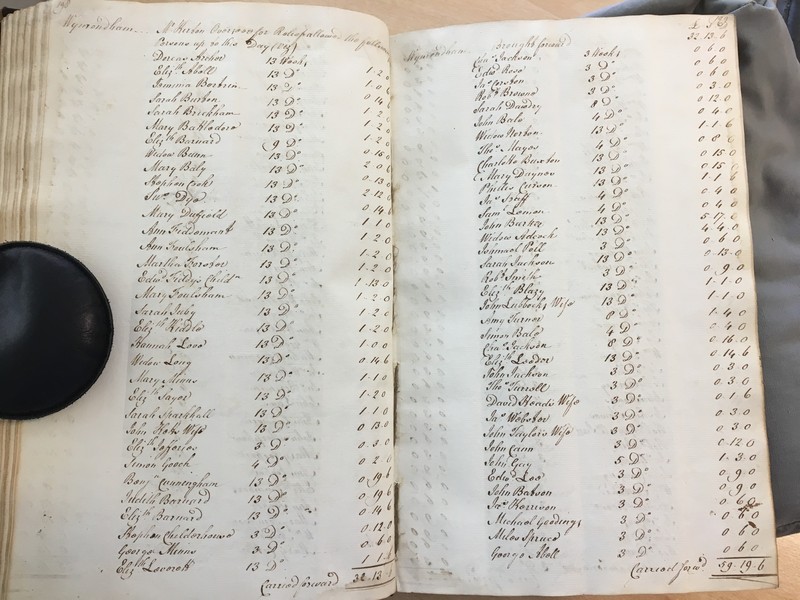 Wymondham Mr Hurton Overseer for Relief allowed the follow
Persons up to this Day (Viz.)
Dorcas Archer 13 Weeks
Eliz.th Aboll 13 D.o 1-2-0
Jemima 13 D.o 1-0-
Sarah Burton 13 D.o 0-14-
Sarah Brickham 13 D.o 1-2-
Mary 13 D.o 1-2-
Eliz.th Barnard (9 D.o 1-2-0
Widow 13 D.o 0-15-
Mary Baly 13 D.o 2-0-
Stephen Cook 13 D.o 0-13-0
13 D.o 2-12-
Mary Duffield 13 D.o 0-14-
Ann 13 D.o 1-1-0
Ann Foulsham 13 D.o 1-2-0
Martha Forster 13 D.o 1-2-0
Edw.d Fiddys Child.n 13 D.o 1-13-0
Mary Foulsham 13 D.o 1-2-0
Sarah 13 D.o 1-2-0
Eliz.th Kiddle 13 D.o 1-2-0
Hannah Love 13 D.o 1-0-0
Widow Long 13 D.o 0-14-6
Mary Minns 13 D.o 1-1-0
Eliz.th Sayer 13 D.o 1-2-0
Sarah Sparkhall 13 D.o 1-1-0
John Wife 13 D.o 0-13-0
Eliz.th Jefferies 3 D.o 0-3-0
Simon Gooch 4 D.o 0-2-0
Benj. Cunningham 13 D.o 0-19-6
Judith Barnard 13 D.o 0-19-6
Eliz.th Barnard 13 D.o 0-14-6
Stephen Childerhouse 3 D.o 0-12-0
George Minns 3 D.o 0-6-0
Eliz.th 13 D.o 1-1-
Carried forward 32-13-
Wymondham brought forward 32-13-6
Cha.s Jackson 3 Weeks 0 6 0
Edw.d Rose 3 D.o 0 6 0
Ja.s 3 D.o 0 6 0
Rob.t Browne 3 D.o 0 3 0
Sarah 8 D.o 0-12-0
John Bale 4 D.o 0 4-0
Widow Norton 13 D.o 1-1-6
Tho.s Mayes 4 D.o 0 8
Charlotte Buxton 13 D.o 0-15
Mary Daynes 13 D.o 0-15
Carson 13 D.o 1-1 6
Ja.s 4 D.o 0 4
Sam.l Lemon 4 D.o 0 4 0
John 13 D.o 5-17-0
Widow Adcock 13 D.o 4-4-0
Pell 3 D.o 0 6 0
Sarah Jackson 13 D.o 0-13-0
Rob.t Smith 3 D.o 0 9 0
Eliz.th Blazy 13 D.o 1-1-0
John Lubbocks Wife 13 D.o 1-1-0
Amy Turner 8 D.o 1-4-0
Simon Bale 4 D.o 0-4-0
Cha.s Jackson 8 D.o 0-16-0
Eliz.th 13 D.o 0-14-6
John Jackson 3 D.o 0-3-0
Tho.s Turrell 3 D.o 0 3-0
David Heads Wife 3 D.o 0 1 6
Ja.s Webster 3 D.o 0 3 0
John Taylors Wife 3 D.o 0 3 0
John Cann 3 D.o 0-12 0
John Guy 5 D.o 1-3-0
Edw.d 3 D.o 0 9 0
John Batson 3 D.o 0 9 0
Ja.s Harrison 3 D.o 0 6
Michael 3 D.o 0 6 0
Miles Spruce 3 D.o 0 6 0
George Aboll 3 D.o 0 6 0
Carried forw.d 59-19-6